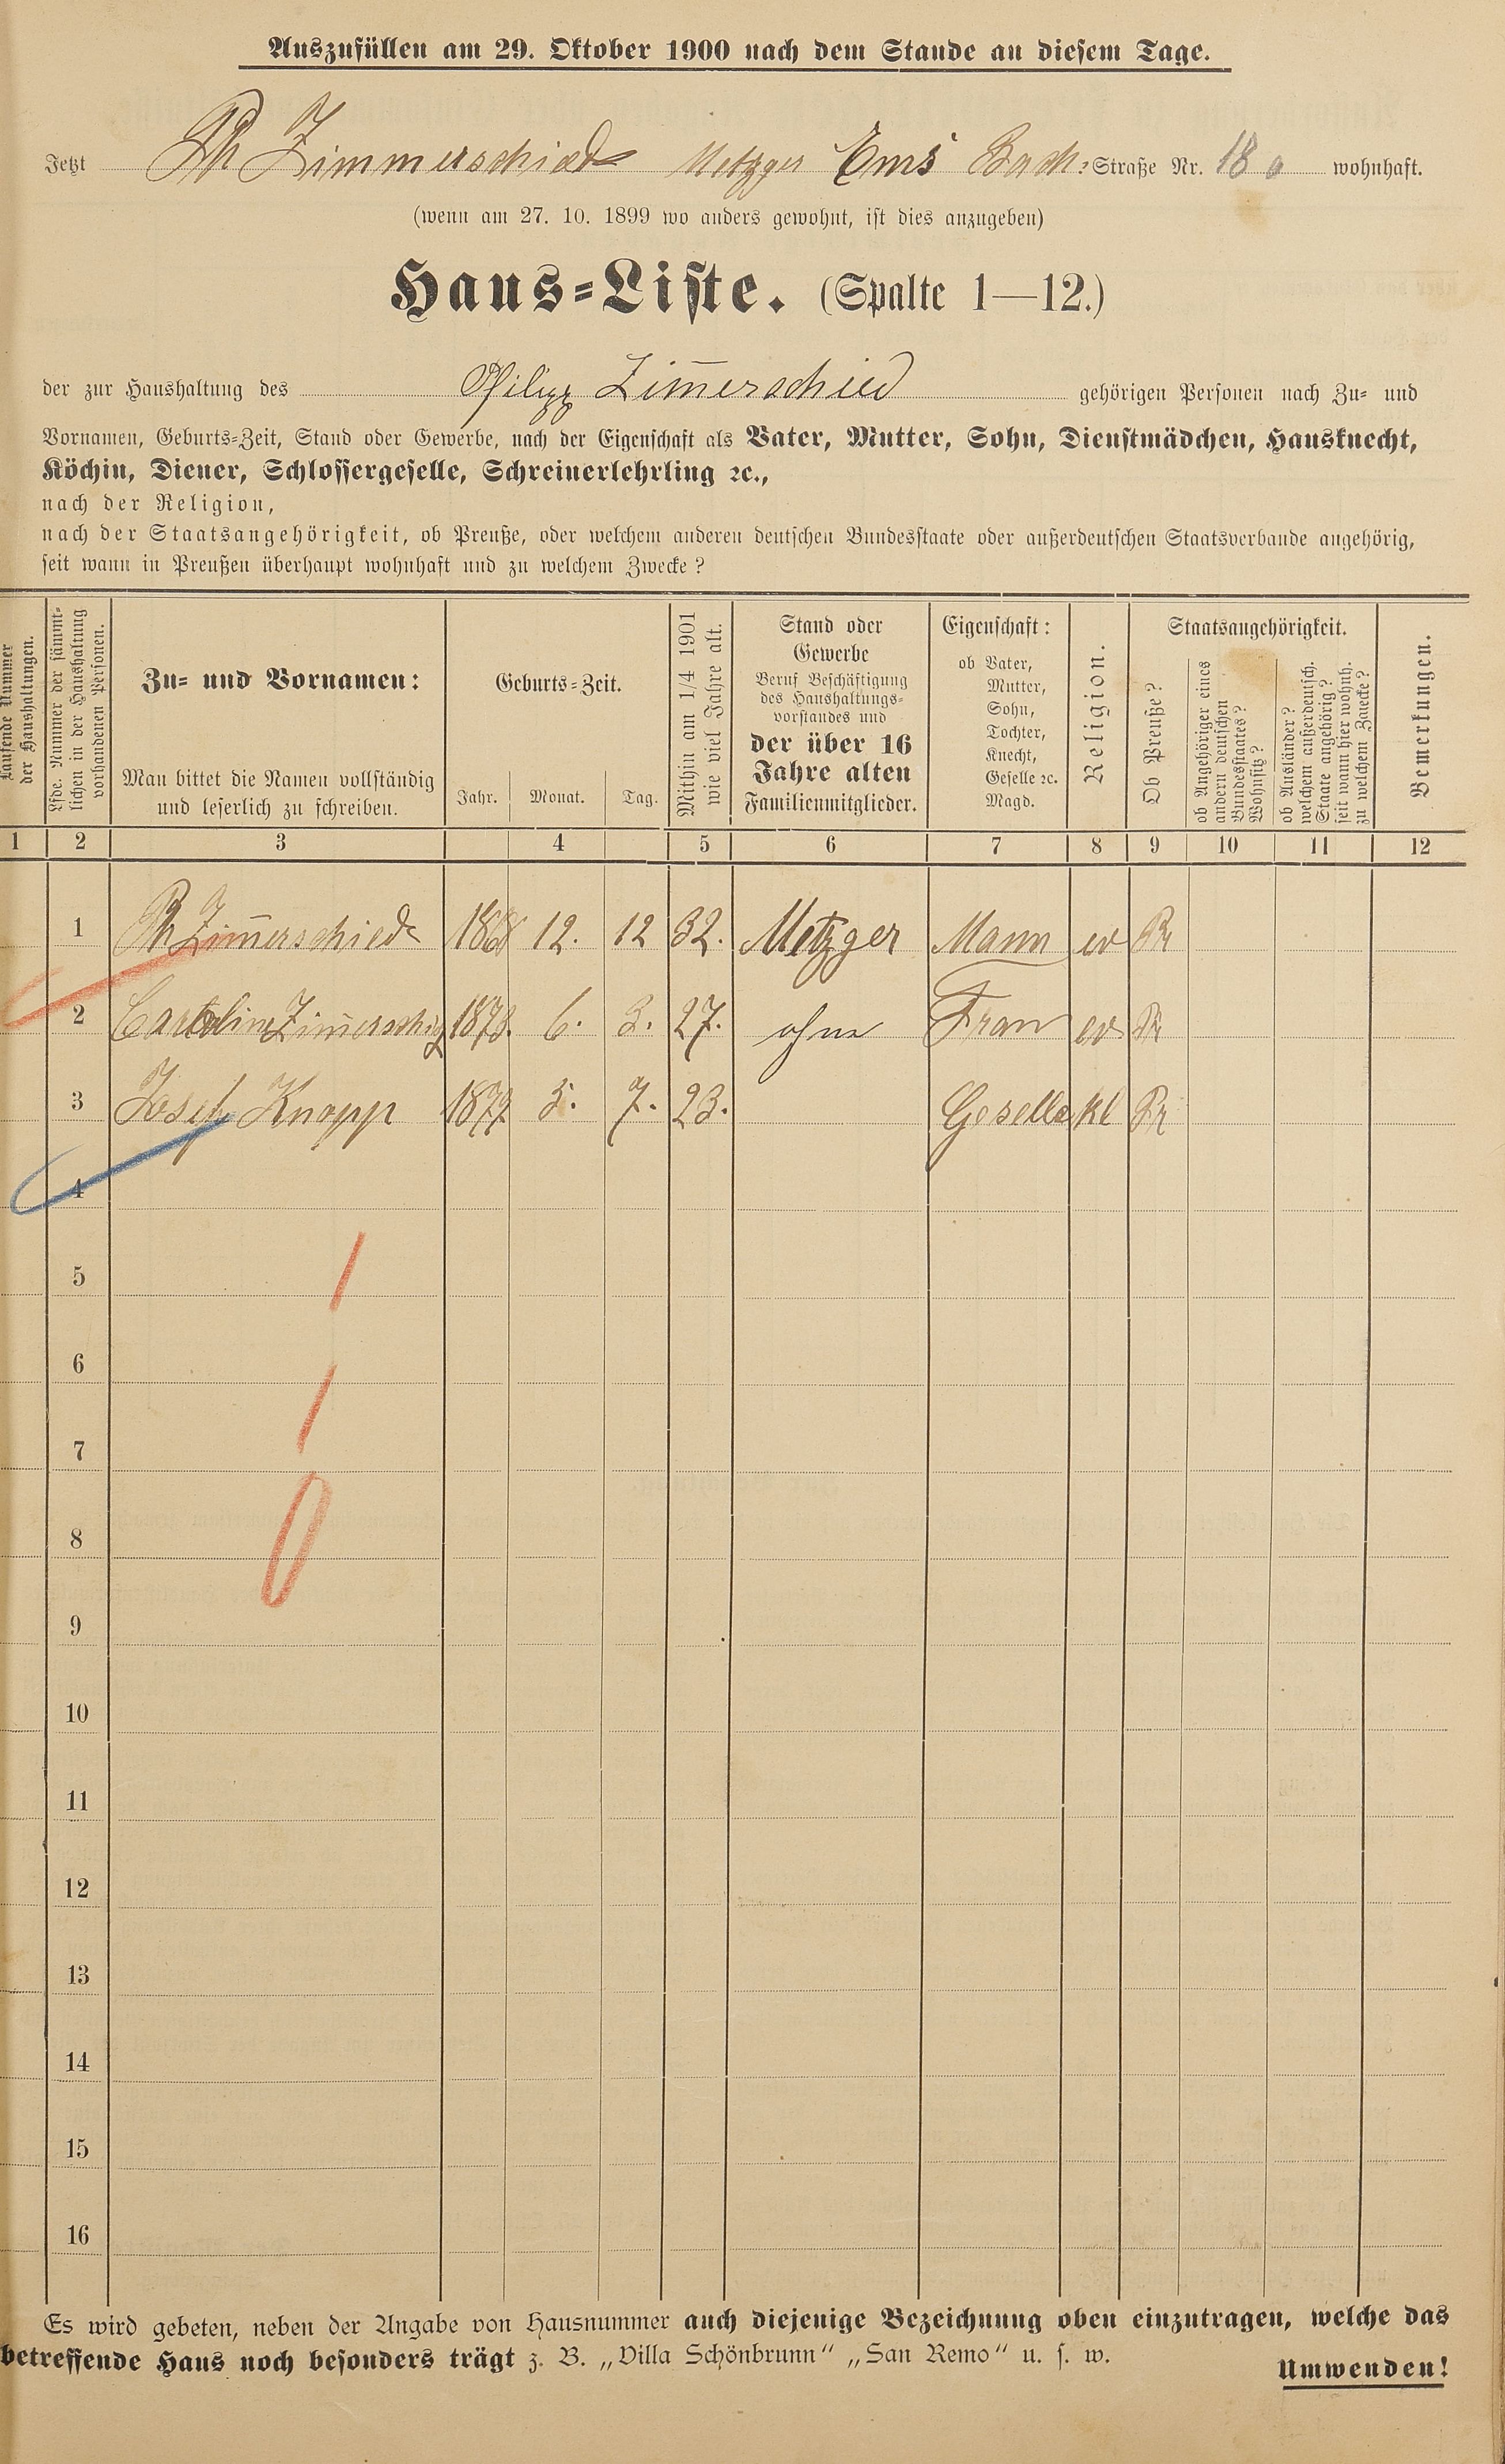 Auszufüllen am 29. Oktober 1900 nach dem Stande an diesem Tage.
Jetzt Ph Zimmerschied Metzger Ems Bach: Straße Nr. 18 a wohnhaft.
(wenn am 27. 10. 1899 wo anders gewohnt, ist dies anzugeben)
Haus-Liste. (Spalte 1—12.)
der zur Haushaltung des Philipp Zim̅erschied gehörigen Personen nach Zu- und
Vornamen, Geburts-Zeit, Stand oder Gewerbe, nach der Eigenschaft als Vater, Mutter, Sohn, Dienstmädchen, Hausknecht,
Köchin, Diener, Schlossergeselle, Schreinerlehrling ꝛc.,
nach der Religion,
nach der Staatsangehörigkeit, ob Preuße, oder welchem anderen deutschen Bundesstaate oder außerdeutschen Staatsverbande angehörig,
seit wann in Preußen überhaupt wohnhaft und zu welchem Zwecke?
Laufende Nummer
der Haushaltungen.
Lfde. Nummer der sämmt-
lichen in der Haushaltung
vorhandenen Personen.
Zu- und Vornamen:
Man bittet die Namen vollständig
und leserlich zu schreiben.
Geburts-Zeit.
Jahr. Monat. Tag.
Mithin am 1/4 1901
wie viel Jahre alt.
Stand oder
Gewerbe
Beruf Beschäftigung
des Haushaltungs-
vorstandes und
der über 16
Jahre alten
Familienmitglieder.
Eigenschaft:
ob Vater,
Mutter,
Sohn,
Tochter,
Knecht,
Geselle ꝛc.
Magd.
Religion.
Staatsangehörigkeit.
Ob Preuße?
ob Angehöriger eines
andern deutschen
Bundesstaates?
Wohnsitz?
ob Ausländer?
welchem außerdeutsch.
Staate angehörig?
seit wann hier wohnh.
zu welchem Zwecke?
Bemerkungen.
1 2 3 4 5 6 7 8 9 10 11 12
1 Ph Zim̅erschied 1868 12. 12 32. Metzger Mann ev Pr
2 Caroline Zim̅erschied 1873. 6. 3. 27. ohne Frau ev Pr
3 Josef Knopp 1877 5. 7. 23. Geselle kl Pr
4
5
6
7
8
9
10
11
12
13
14
15
16
Es wird gebeten, neben der Angabe von Hausnummer auch diejenige Bezeichnung oben einzutragen, welche das
betreffende Haus noch besonders trägt z. B. „Villa Schönbrunn“ „San Remo“ u. s. w.
Umwenden!